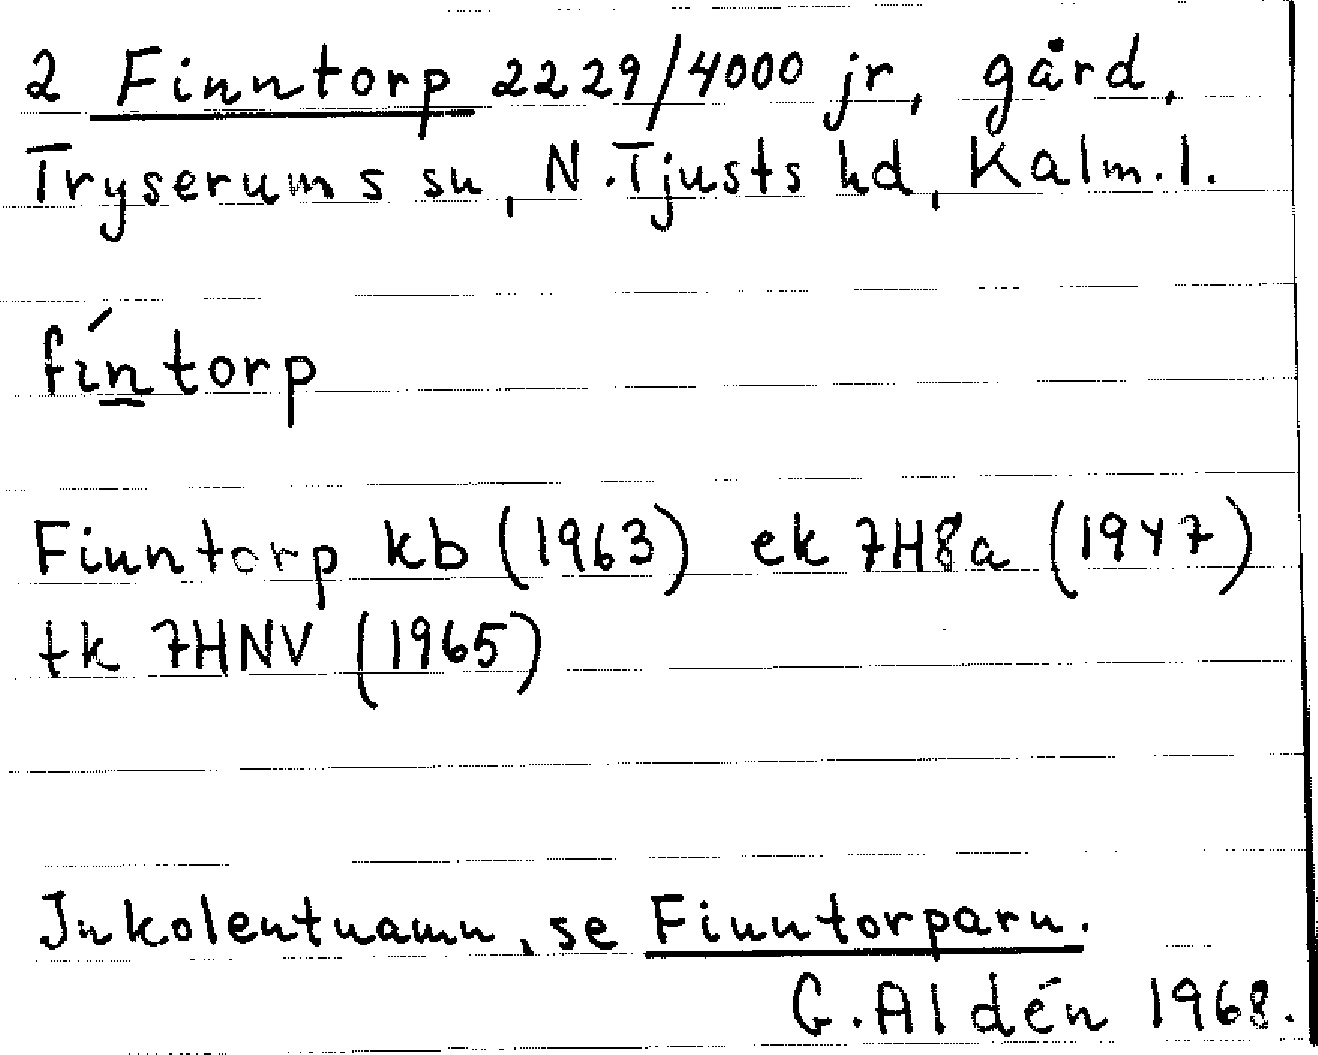 2 Finntorp 2229/4000 jr, gård,
Tryserums sn, N. Tjusts hd, Kalm. l.
fíntorp
Finntorp kb (1963) ek 7H8a (1947)
tk 7HNV (1965)
Inkolentnamn, se Finntorparn.
G. Aldén 1968.